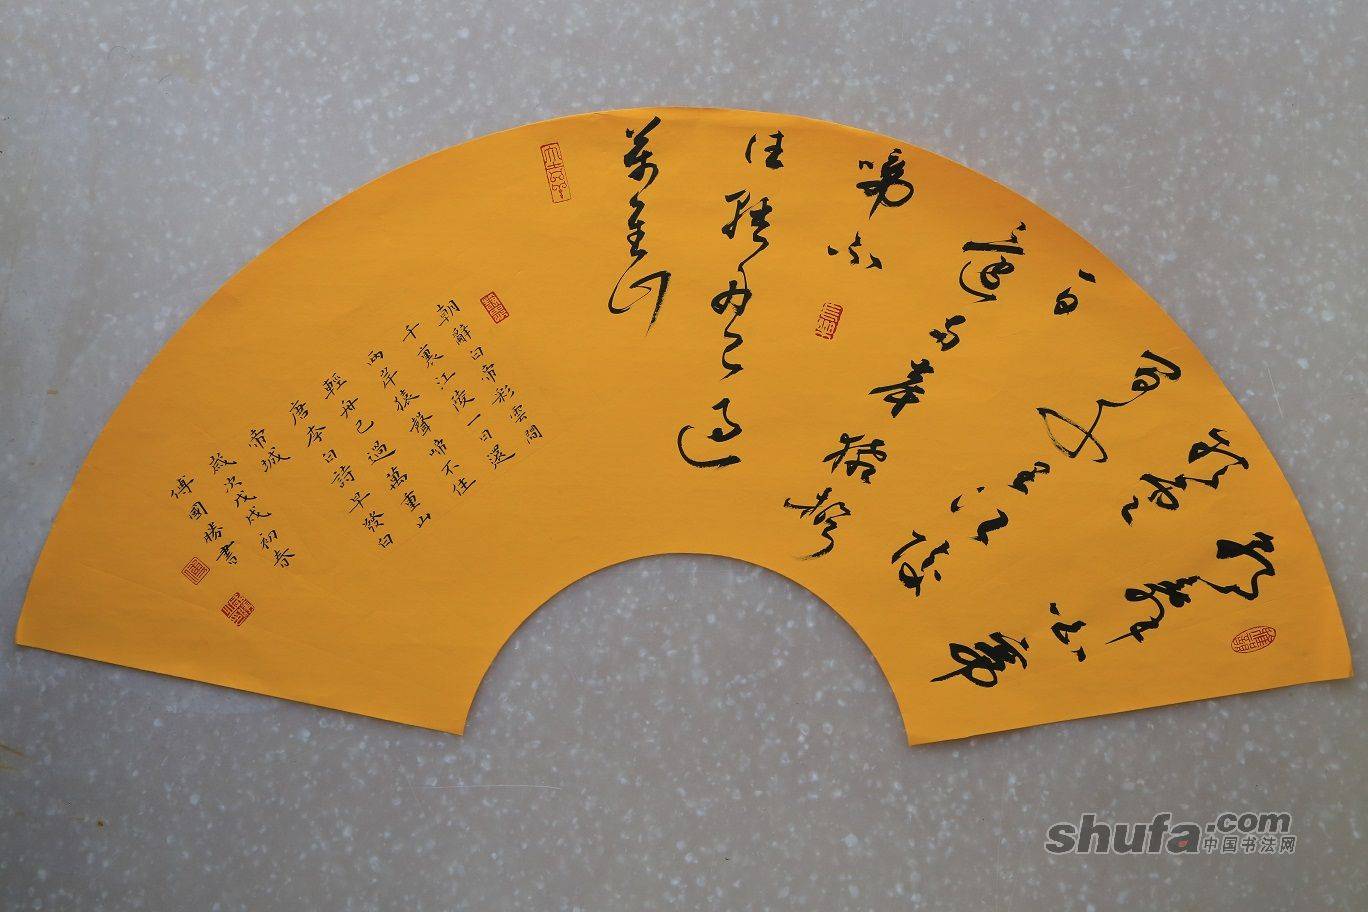 朝辞白帝
彩云
间千里江陵
一日还两岸猿声
啼不
住轻舟已过
万重山
朝辭白帝彩雲間
千裏江陵一日還
兩岸猿聲啼不住
輕舟已過萬重山
唐李白詩早發白
帝城
歲次戊戌初春
傅國勝書
shufa.com
中国书法网